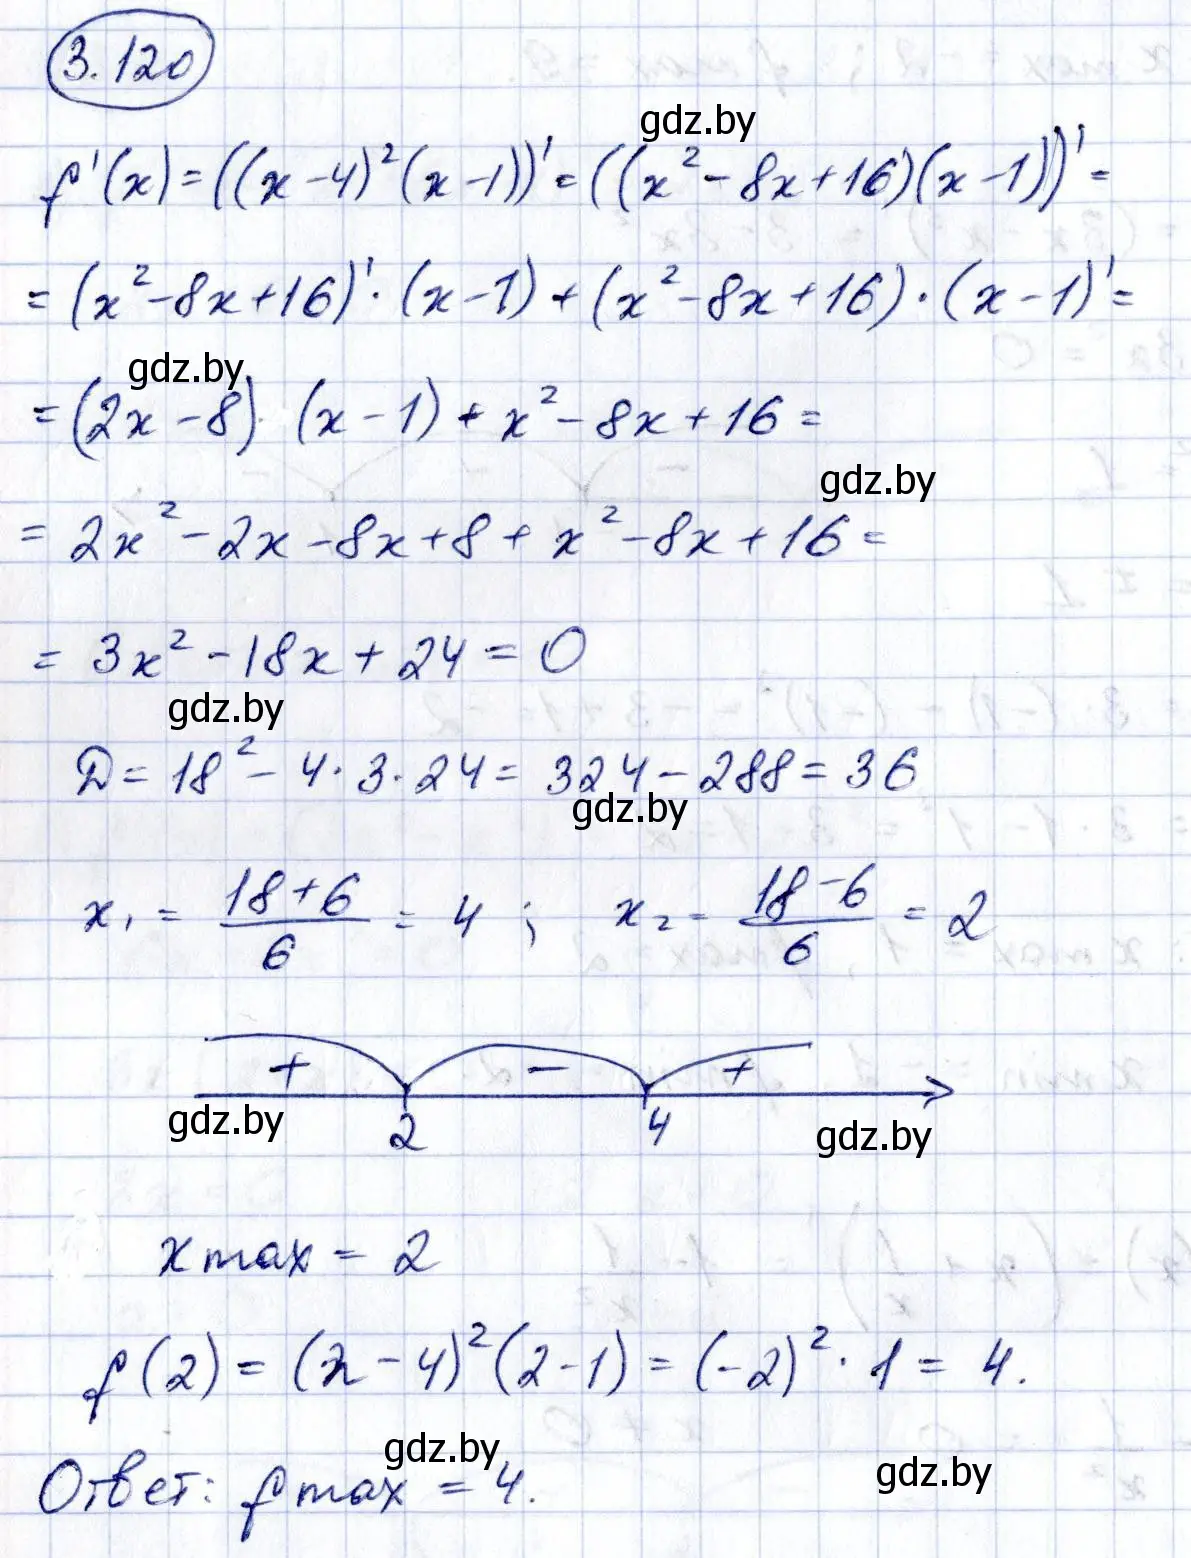 3.120
gdz.by
f'(x) = ((x-4)²(x-1))' = ((x² - 8x + 16)(x-1))' =
= (x² - 8x + 16)' · (x - 1) + (x² - 8x + 16) · (x - 1)' =
gdz.by
= (2x - 8) · (x - 1) + x² - 8x + 16 =
gdz.by
= 2x² - 2x - 8x + 8 + x² - 8x + 16 =
= 3x² - 18x + 24 = 0
gdz.by
D = 18² - 4 · 3 · 24 = 324 - 288 = 36
gdz.by
x₁ = (18+6)/6 = 4 ; x₂ = (18-6)/6 = 2
+ - +
2 4
gdz.by gdz.by
x max = 2
f(2) = (x - 4)²(2 - 1) = (-2)² · 1 = 4.
gdz.by
Ответ: f max = 4.
gdz.by